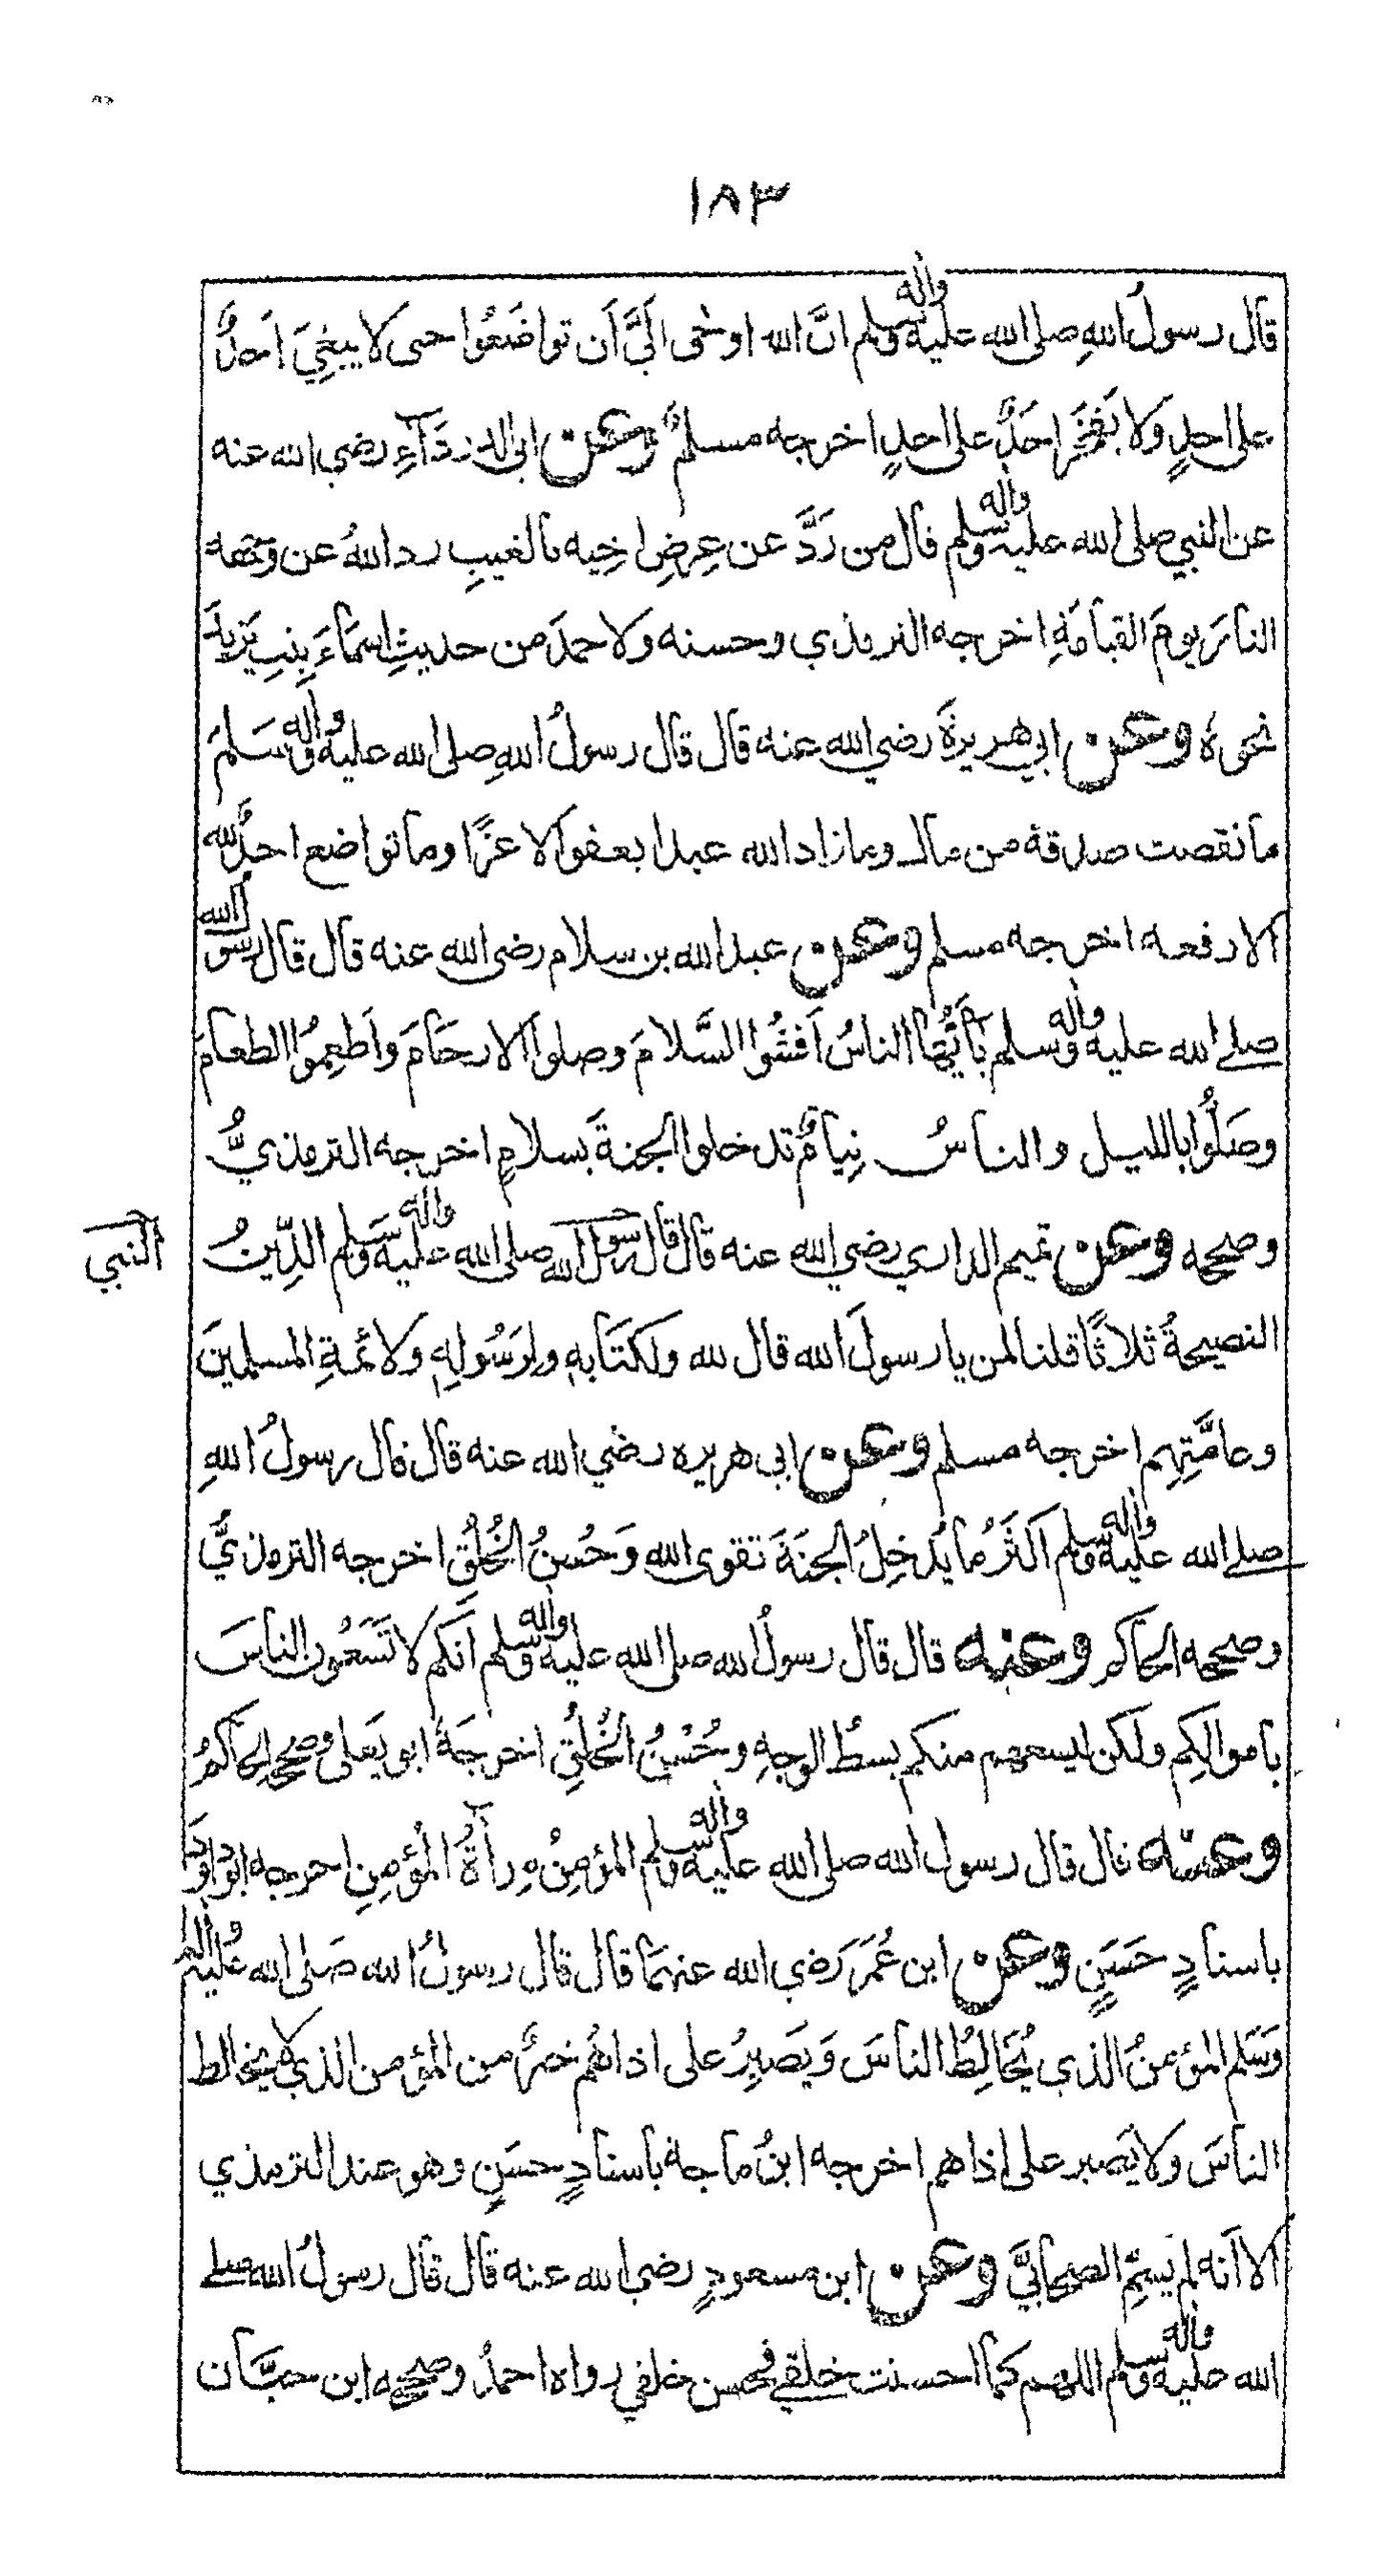 ١٨٣
قال رسولُ اللهِ صلى الله عليه واله وسلم انَّ الله اوحى الَيَّ أن تواضَعُوا حتى لا يبغِيَ أحدٌ
على احدٍ ولا يَفخَرَ احَدٌ على احدٍ اخرجه مسلمٌ وعن ابى الدردَآءِ رضي الله عنه
عن النبي صلى الله عليه واله وسلم قال من رَدَّ عن عِرضِ اخِيه بالغيبِ رد اللهُ عن وجهه
النارَ يومَ القيامَةِ اخرجه الترمذي وحسنه ولاحمدَ من حديثِ اسمآءَ بِنتِ يَزِيدَ
نحوُهُ وعن ابي هريرةَ رضي الله عنه قال قال رسولُ اللهِ صلى الله عليه واله وسَلم
ما نقصت صدقة من مال وما زاد الله عبدا بعفو الا عزًّا وما تواضع احدٌ لله
الا رفعه اخرجه مسلم وعن عبد الله بن سلام رضى الله عنه قال قال رسولُ الله
صلى الله عليه واله وسلم يَأَيُّهَا الناسُ أفشُوا السَّلامَ وصلوا الارحَامَ وأطعِمُوا الطعامَ
وصَلُّوا بالليل والناسُ نِيامٌ تدخلوا الجنةَ بسلامٍ اخرجه الترمذيُّ
وصححه وعن تميم الداري رضي الله عنه قال قال رسول الله صلى الله عليه واله وسَلم الدِّينُ
النبي
النصيحةُ ثلاثًا قلنا لمن يا رسولَ الله قال لله ولكتَابِهِ ولرَسُولِهِ ولائمةِ المسلمينَ
وعامَّتِهِم اخرجه مسلم وعن ابى هريره رضي الله عنه قال قال رسولُ اللهِ
صلى الله عليه واله وسلم اَكثَرُ ما يُدخِلُ الجنَةَ تقوى الله وَحُسنُ الخُلُقِ اخرجه الترمذيُّ
وصححه الحاكم وعنه قال قال رسولُ الله صلى الله عليه واله وسلم انكم لا تَسَعُونَ الناسَ
باموالِكم ولكن ليسعهم منكم بسطُ الوجهِ وحُسْنُ الخُلُقِ اخرجَهُ ابو يَعلى وصححه الحاكمُ
وعنه قال قال رسول الله صلى الله عليه واله وسلم المؤمِنُ مِرآةُ المُؤمِنِ اخرجه ابو داودَ
باسنادٍ حَسَنٍ وعن ابن عُمَرَ رَضي الله عنهمَا قال قال رسولُ الله صَلى الله عليه واله
وَسَلم المؤمنُ الذي يُخَالِطُ الناسَ وَيَصبِرُ على اذاهُم خيرٌ من المؤمن الذي لا يخالط
الناسَ ولا يَصبر على اذاهم اخرجه ابنُ ماجة باسنادٍ حسَنٍ وهو عند الترمذي
الا أنه لم يسَمِّ الصحابيَّ وعن ابن مسعودٍ رضي الله عنه قال قال رسولُ الله صلى
الله عليه واله وسلم اللهم كما احسنت خلقي فحسن خلقي رواه احمدُ وصححه ابن حبَّان